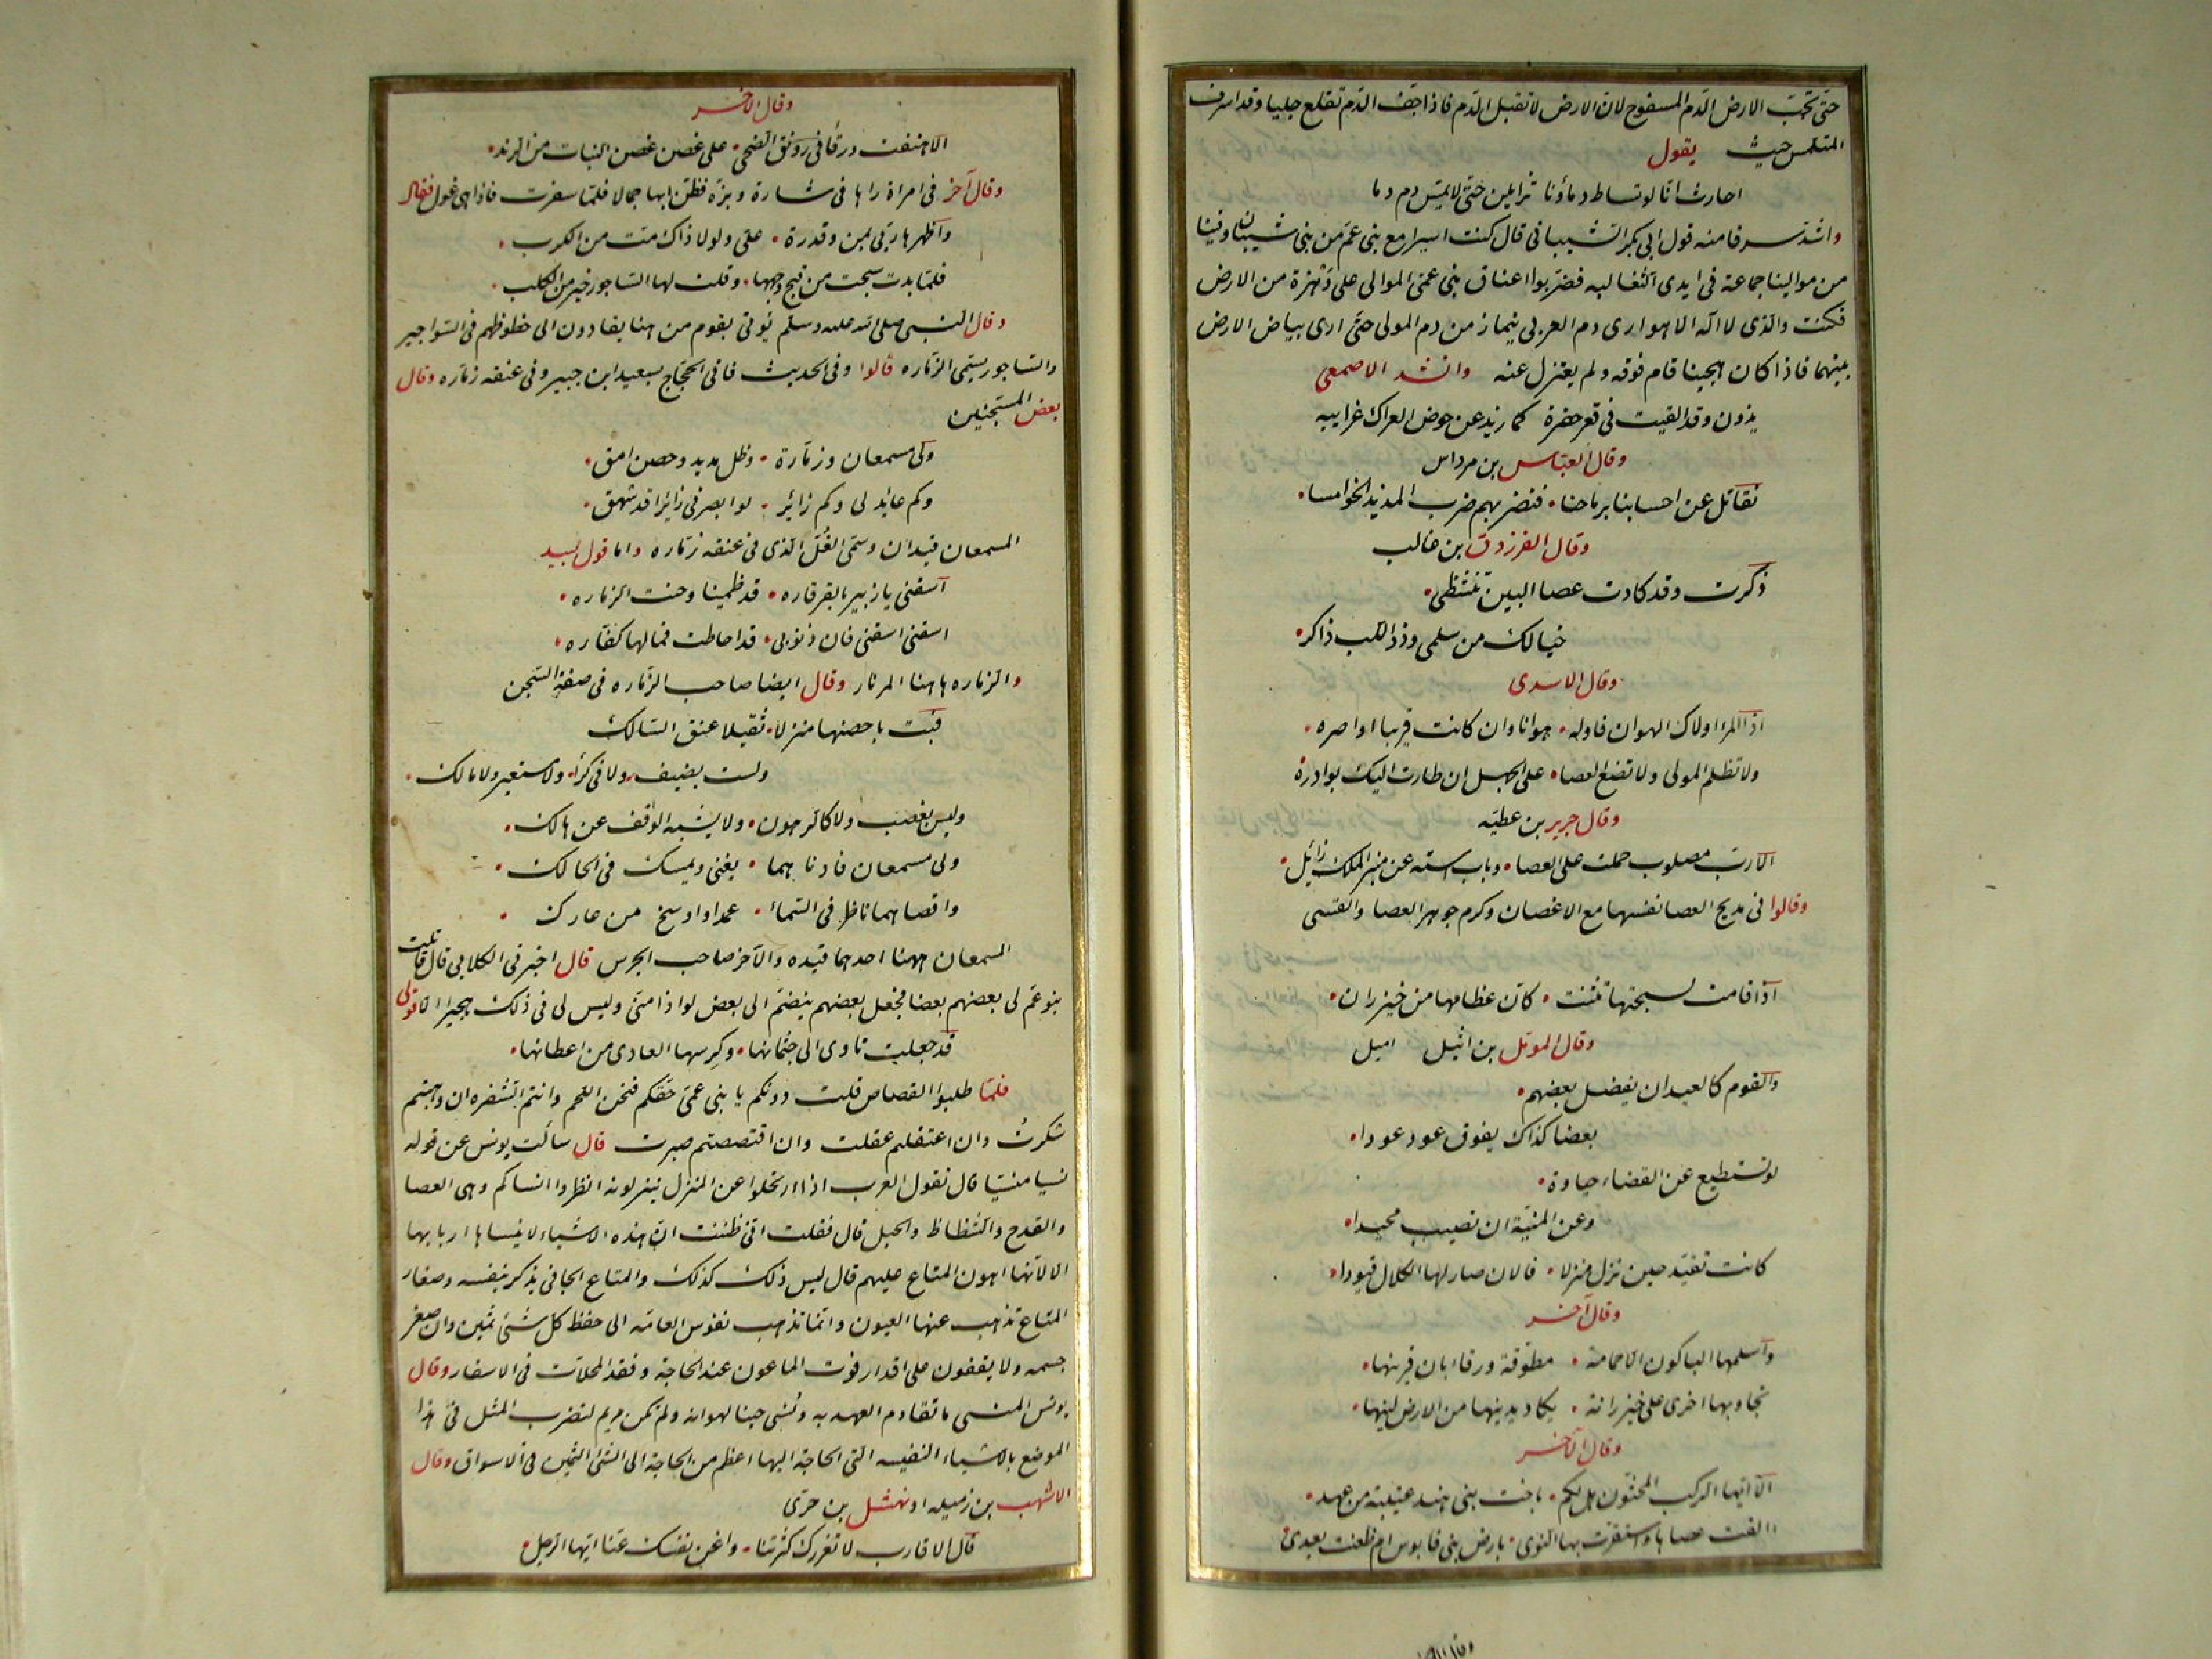 حتى تحب الارض الدم المسفوح لان الارض لا تقبل الدم فاذا جف الدم تقلع جلبا وقد اسرف
المتلمس حيث يقول
احارث انا لو تساط دماؤنا تزايلن حتى لا يمس دم دما
واشد سرفا منه قول ابى بكر الشيبانى قال كنت اسيرا مع بنى عم من بنى شيبان وفينا
من موالينا جماعة فى ايدى التغالبه فضربوا اعناق بنى عمى الموالى على وهزة من الارض
فكنت والذى لا اله الا هو ارى دم العربى ينماز من دم المولى حتى ارى بياض الارض
بينهما فاذا كان هجينا قام فوقه ولم يعتزل عنه وانشد الاصمعى
يذدن وقد القيت فى قعر حفرة كما زيد عن حوض العراك غرايبه
وقال العباس بن مرداس
نقاتل عن احسابنا برماحنا فنضربهم ضرب المذيد الخوامسا
وقال الفرزدق بن غالب
ذكرت وقد كادت عصا البين تنشظى
خيالك من سلمى وذو اللب ذاكر
وقال الاسدى
اذا المرء اولاك الهوان فاوله هوانا وان كانت قريبا اواصره
ولا تظلم المولى ولا تضع العصا على الجهل ان طارت اليك بوادره
وقال جرير بن عطيه
الا رب مصلوب حملت على العصا وباب استه عن منبر الملك زائل
وقالوا فى مديح العصا نفسها مع الاغصان وكرم جوهر العصا والقسى
اذا قامت لسبحتها تثنت كان عظامها من خيزران
وقال المومل بن اثيل اميل
والقوم كالعيدان يفضل بعضهم
بعضا كذاك يفوق عود عودا
لو تستطيع عن القضاء حيادة
وعن المنية ان تصيب محيدا
كانت تقيد حين تنزل منزلا فالان صار لها الكلال قيودا
وقال آخر
واسلمها الباكون الا حمامة مطوقة ورقا بان قرينها
تجاوبها اخرى على خيزرانة يكاد يدينها من الارض لينها
وقال الآخر
الا ايها الركب المخبون هل لكم باخت بنى هند عتيبة من عهد
االقت عصاها واستقرت بها النوى بارض بنى قابوس ام ظعنت بعدى
وقال الآخر
الا هتفت ورقا فى رونق الضحى على غصن غصن النبات من الرند
وقال آخر فى امراة راها فى شارة وبزة فظن بها جمالا فلما سفرت فاذا هى غول فقال
واظهرها ربى بمن وقدرة على ولولا ذاك مت من الكرب
فلما بدت سبحت من قبح وجهها وقلت لها الساجور خير من الكلب
وقال النبى صلى الله عليه وسلم يؤتى بقوم من هنا يقادون الى حظوظهم فى السواجير
والساجور يسمى الزماره قالوا وفى الحديث فاتى الحجاج بسعيد ابن جبير وفى عنقه زماره وقال
بعض المستجنين
ولى مسمعان وزمارة وظل مديد وحصن امق
وكم عائد لى وكم زائر لو ابصرنى زائرا قد شهق
المسمعان قيدان وسمى الغل الذى فى عنقه زماره واما قول لبيد
اسقنى يا زبير بالقرقاره قد ظمينا وحنت الزماره
اسقنى اسقنى فان ذنوبى قد احاطت فما لها كفاره
والزماره هاهنا المزمار وقال ايضا صاحب الزماره فى صفة السجن
فبت باحصنها منزلا ثقيلا عنق السالك
ولست بضيف ولا فى كراء ولا مستعير ولا مالك
وليس بغصب ولا كالرهون ولا يشبه الوقف عن هالك
ولى مسمعان فادناهما يغنى ويمسك فى الحالك
واقصاهما ناظر فى السماء عمدا واوسخ من عارك
المسمعان ههنا احدهما قيده والآخر صاحب الجرس قال اخبرنى الكلابى قال قاتلت
بنو عم لى بعضهم بعضا فجعل بعضهم ينضم الى بعض لواذا منى وليس لى فى ذلك هجيرا الا قولى
قد جعلت تاوى الى جثمانها وكرسها العادى من اعطانها
فلما طلبوا القصاص قلت دونكم يا بنى عمى حقكم فنحن اللحم وانتم الشفره ان وهبتم
شكرت وان اعتقلتم عقلت وان اقتصصتم صبرت قال سالت يونس عن قوله
نسيا منسيا قال تقول العرب اذا ارتحلوا عن المنزل ينزلونه انظروا انساكم وهى العصا
والقدح والشظاظ والحبل قال فقلت انى ظننت ان هذه الاشياء لا ينساها اربابها
الا لانها اهون المتاع عليهم قال ليس ذلك كذلك والمتاع الجافى يذكر بنفسه وصغار
المتاع تذهب عنها العيون وانما تذهب نفوس العامه الى حفظ كل شئ ثمين وان صغر
جسمه ولا يقفون على اقدار فوت الماعون عند الحاجة وفقد المحلات فى الاسفار وقال
يونس المنسى ما تقادم العهد به ونسى حينا لهوانه ولم تكن مريم لتضرب المثل فى هذا
الموضع بالاشياء النفيسه التى الحاجة اليها اعظم من الحاجة الى الشئ الثمين فى الاسواق وقال
الاشهب بن رميله او نهشل بن حرى
قال الاقارب لا تغررك كثرتنا واغن نفسك عنا ايها الرجل